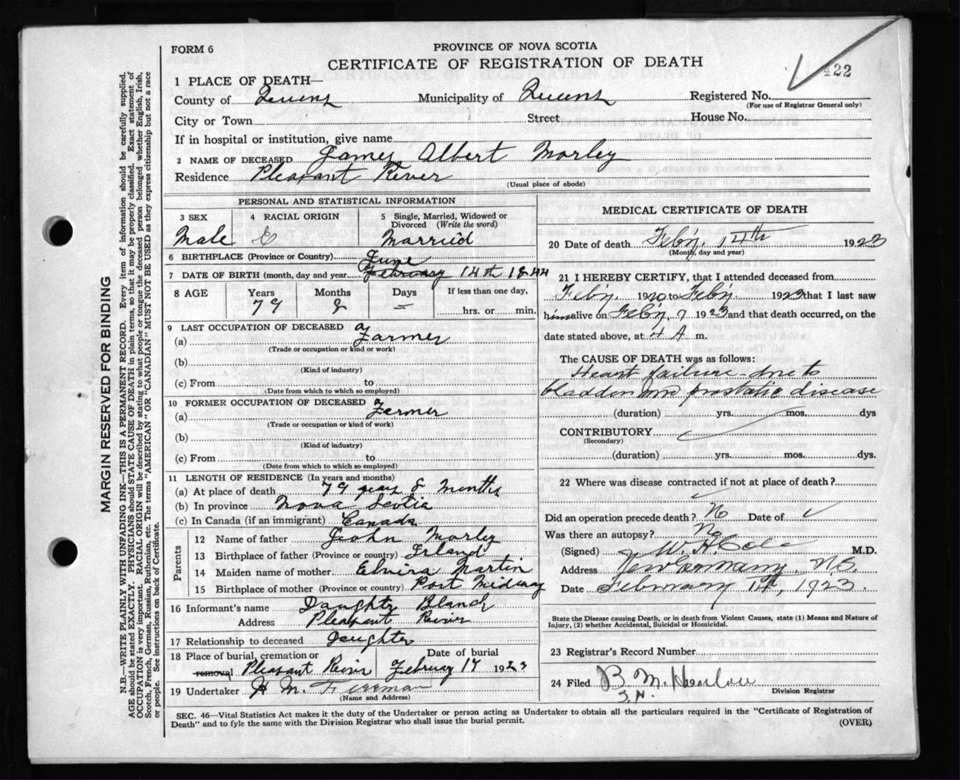 FORM 6
PROVINCE OF NOVA SCOTIA
CERTIFICATE OF REGISTRATION OF DEATH
422
1 PLACE OF DEATH—
County of Queens Municipality of Queens Registered No.
(For use of Registrar General only)
City or Town Street House No.
If in hospital or institution, give name
2 NAME OF DECEASED James Albert Morley
Residence Pleasant River
(Usual place of abode)
PERSONAL AND STATISTICAL INFORMATION
3 SEX
Male
4 RACIAL ORIGIN
E
5 Single, Married, Widowed or Divorced (Write the word)
Married
6 BIRTHPLACE (Province or Country)
June
7 DATE OF BIRTH (month, day and year) February 14th 1844
8 AGE Years Months Days If less than one day,
79 8 — hrs. or min.
9 LAST OCCUPATION OF DECEASED
(a) Farmer
(Trade or occupation or kind or work)
(b)
(Kind of industry)
(c) From to
(Date from which to which so employed)
10 FORMER OCCUPATION OF DECEASED
(a) Farmer
(Trade or occupation or kind of work)
(b)
(Kind of industry)
(c) From to
(Date from which to which so employed)
11 LENGTH OF RESIDENCE (In years and months)
(a) At place of death 79 years 8 months
(b) In province Nova Scotia
(c) In Canada (if an immigrant) Canada
Parents
12 Name of father John Morley
13 Birthplace of father (Province or country) Irland
14 Maiden name of mother Elmira Martin
15 Birthplace of mother (Province or country) Port Midway
16 Informant's name Daughter Blanch
Address Pleasant River
17 Relationship to deceased Daughter
18 Place of burial, cremation or removal Date of burial
Pleasant River February 17 1923
19 Undertaker H M Freeman
(Name and Address)
MEDICAL CERTIFICATE OF DEATH
20 Date of death Feb'y. 14th 1923
(Month, day and year)
21 I HEREBY CERTIFY, that I attended deceased from
Feb'y 1920 to Feb'y 1923 that I last saw
him alive on Feb'y. 7 1923 and that death occurred, on the
date stated above, at 4 A m.
The CAUSE OF DEATH was as follows:
Heart failure due to
bladder and prostatic disease
(duration) yrs. mos. dys
CONTRIBUTORY
(Secondary)
(duration) yrs. mos. dys.
22 Where was disease contracted if not at place of death?
Did an operation precede death? No Date of
Was there an autopsy? No
(Signed) W. H. Cole M.D.
Address New Germany, N.S.
Date February 1923
State the Disease causing Death, or in death from Violent Causes, state (1) Means and Nature of Injury, (2) whether Accidental, Suicidal or Homicidal.
23 Registrar's Record Number
24 Filed B. M. Division Registrar
SEC. 46—Vital Statistics Act makes it the duty of the Undertaker or person acting as Undertaker to obtain all the particulars required in the "Certificate of Registration of
Death" and to fyle the same with the Division Registrar who shall issue the burial permit.
(OVER)
MARGIN RESERVED FOR BINDING
N.B.—WRITE PLAINLY WITH UNFADING INK—THIS IS A PERMANENT RECORD. Every item of information should be carefully supplied.
AGE should be stated EXACTLY. PHYSICIANS should STATE CAUSE OF DEATH in plain terms, so that it may be properly classified. Exact statement of
OCCUPATION is very important. RACIAL ORIGIN will be described by stating to what people or tongue the deceased person belonged whether English, Irish,
Scotch, French, German, Russian, Ruthenian, etc. The terms "AMERICAN" OR "CANADIAN" MUST NOT BE USED as they express citizenship but not a race
or people. See instructions on back of Certificate.